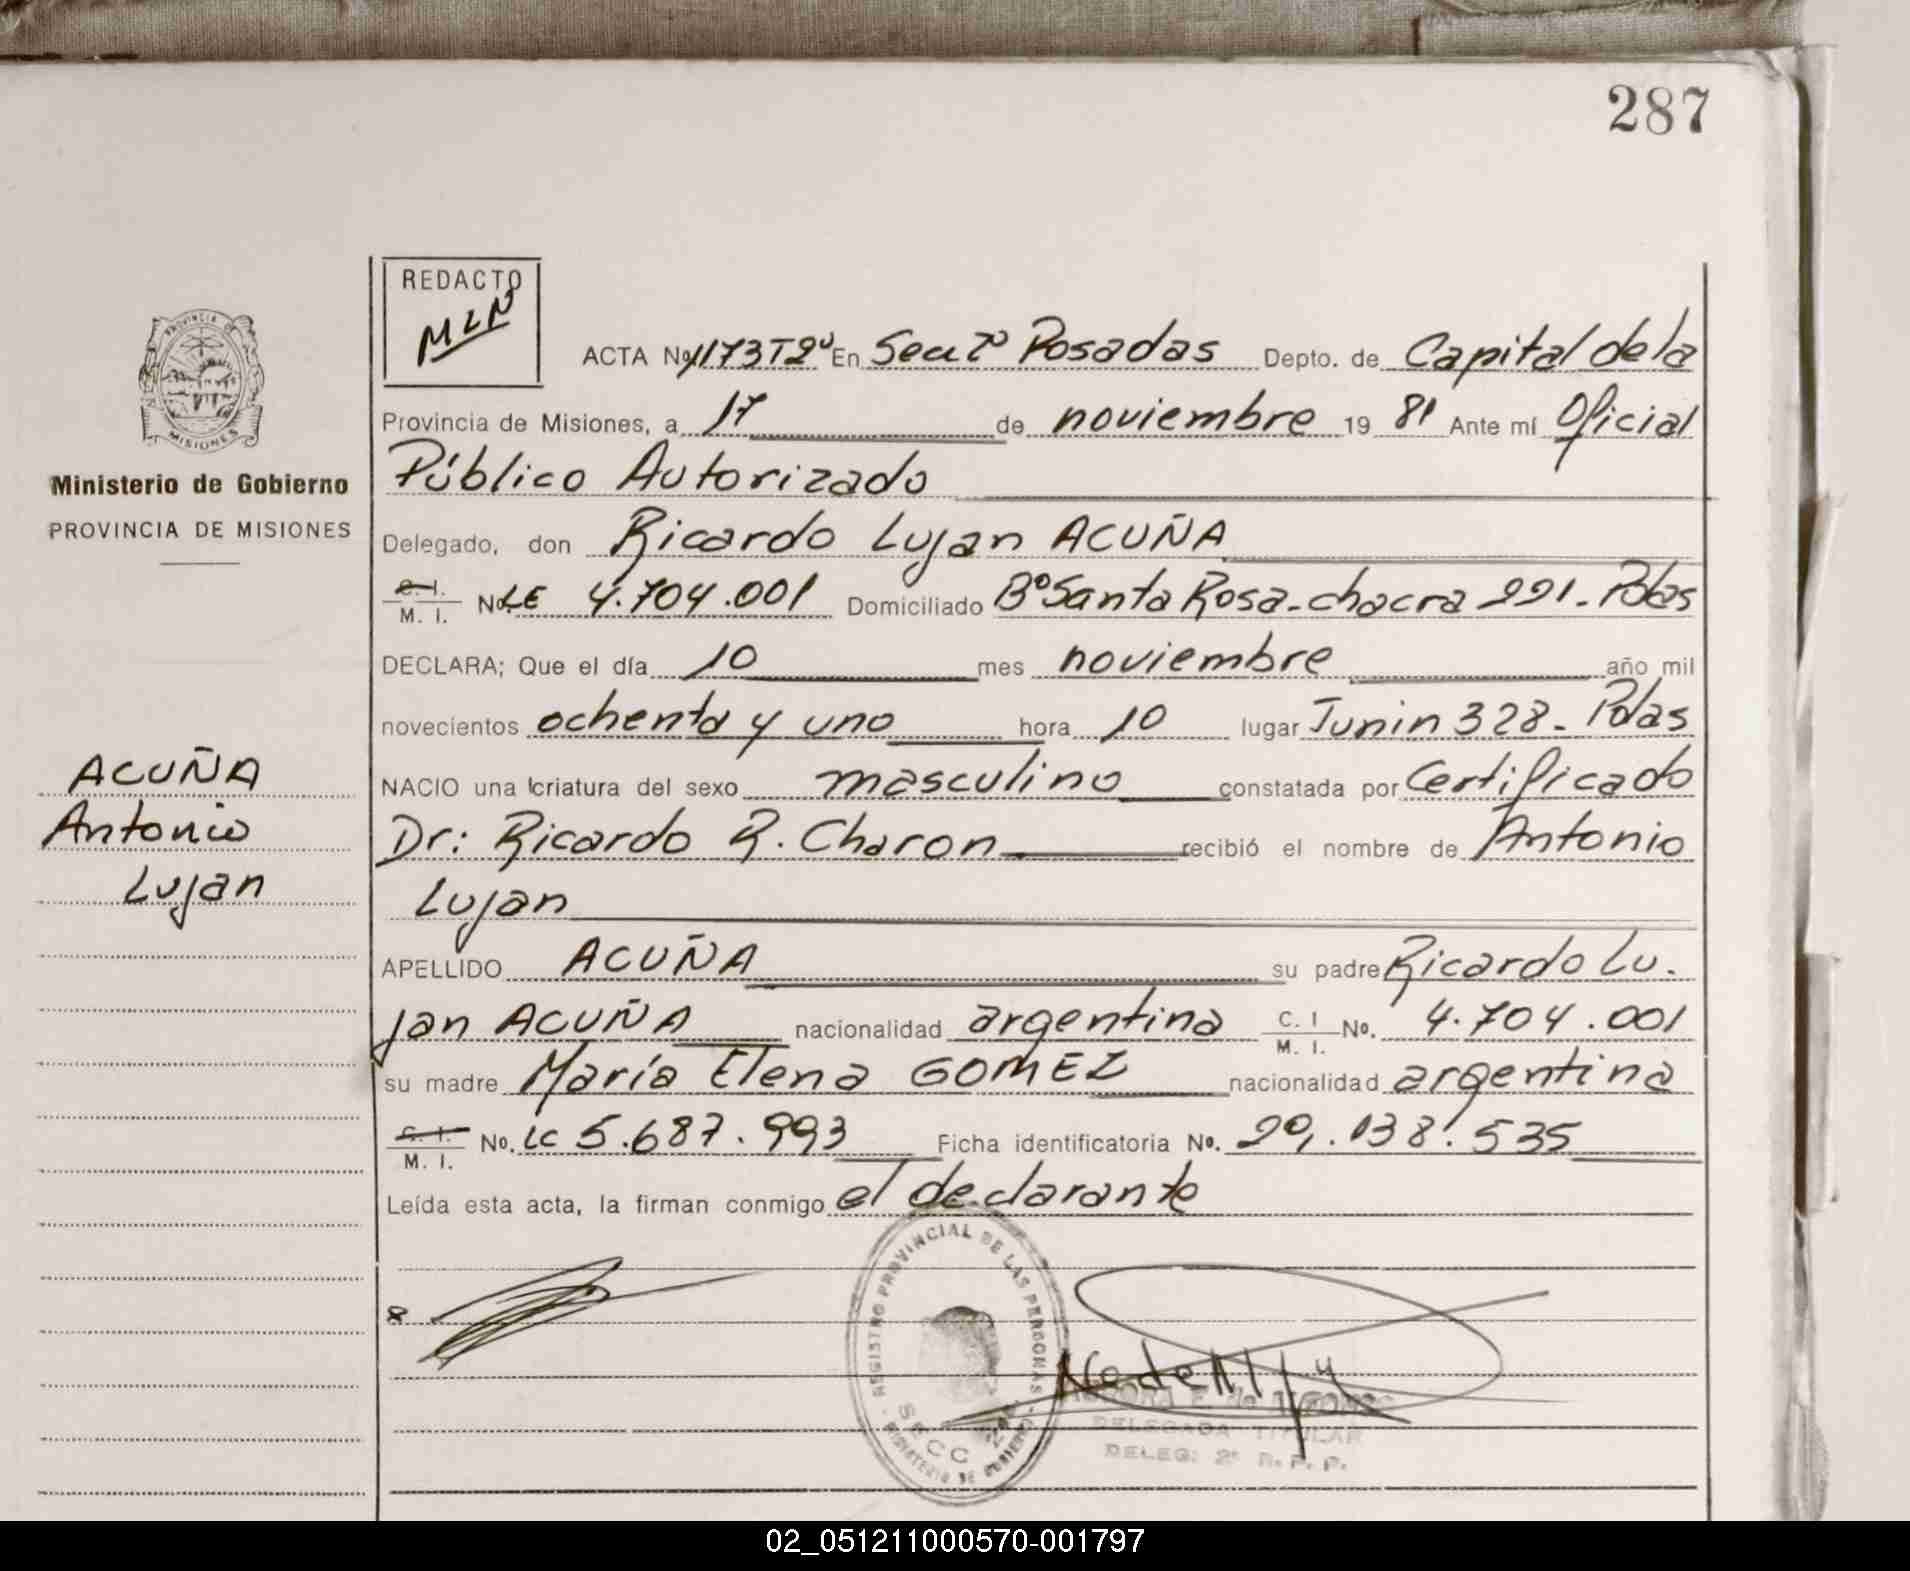 287
REDACTO
MLN
PROVINCIA DE
MISIONES
Ministerio de Gobierno
PROVINCIA DE MISIONES
ACTA Nº 1173 T2º En Secc 2º Posadas Depto. de Capital de la
Provincia de Misiones, a 17 de noviembre 19 81 Ante mí Oficial
Público Autorizado
Delegado, don Ricardo Lujan ACUÑA
C. I.
M. I. Nº LE 4.704.001 Domiciliado Bº Santa Rosa - chacra 221 - Pdas
DECLARA; Que el día 10 mes noviembre año mil
novecientos ochenta y uno hora 10 lugar Junin 328 - Pdas
NACIO una criatura del sexo masculino constatada por Certificado
Dr: Ricardo R. Charon recibió el nombre de Antonio
Lujan
APELLIDO ACUÑA su padre Ricardo Lu.
jan ACUÑA nacionalidad argentina C. I M. I. Nº. 4.704.001
su madre María Elena GOMEZ nacionalidad argentina
C. I. M. I. No. LC 5.687.993 Ficha identificatoria Nº. 29.138.535
Leída esta acta, la firman conmigo el declarante
ACUÑA
Antonio
Lujan
REGISTRO PROVINCIAL DE LAS PERSONAS
SECC 2ª
MINISTERIO DE GOBIERNO
DELEGADA TITULAR
DELEG. 2ª R. P. P.
02_051211000570-001797